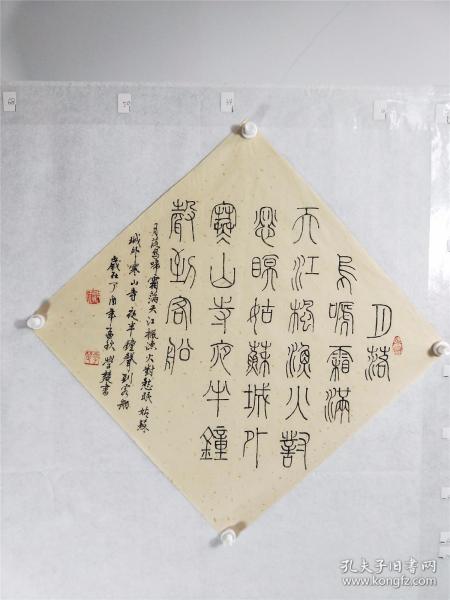 月落
烏啼霜滿
天江楓漁火對
愁眠姑蘇城外
寒山寺夜半鐘
聲到客船
月落烏啼霜滿天江楓漁火對愁眠姑蘇
城外寒山寺夜半鐘聲到客船
歲在丁酉年孟秋書
50
孔夫子旧书网
www.kongfz.com